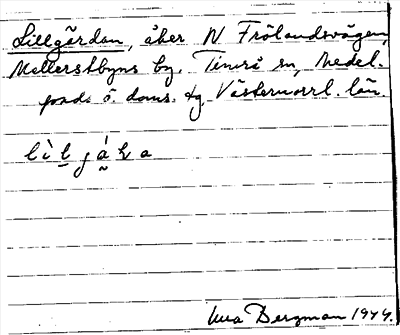 Lillgärdan, åker N Frölandsvägen,
Mellerstbyns by. Timrå sn, Medel-
pads ö. doms. tg Västernorrl. län.
lìl̠ já̰ka
Bergman 1944.